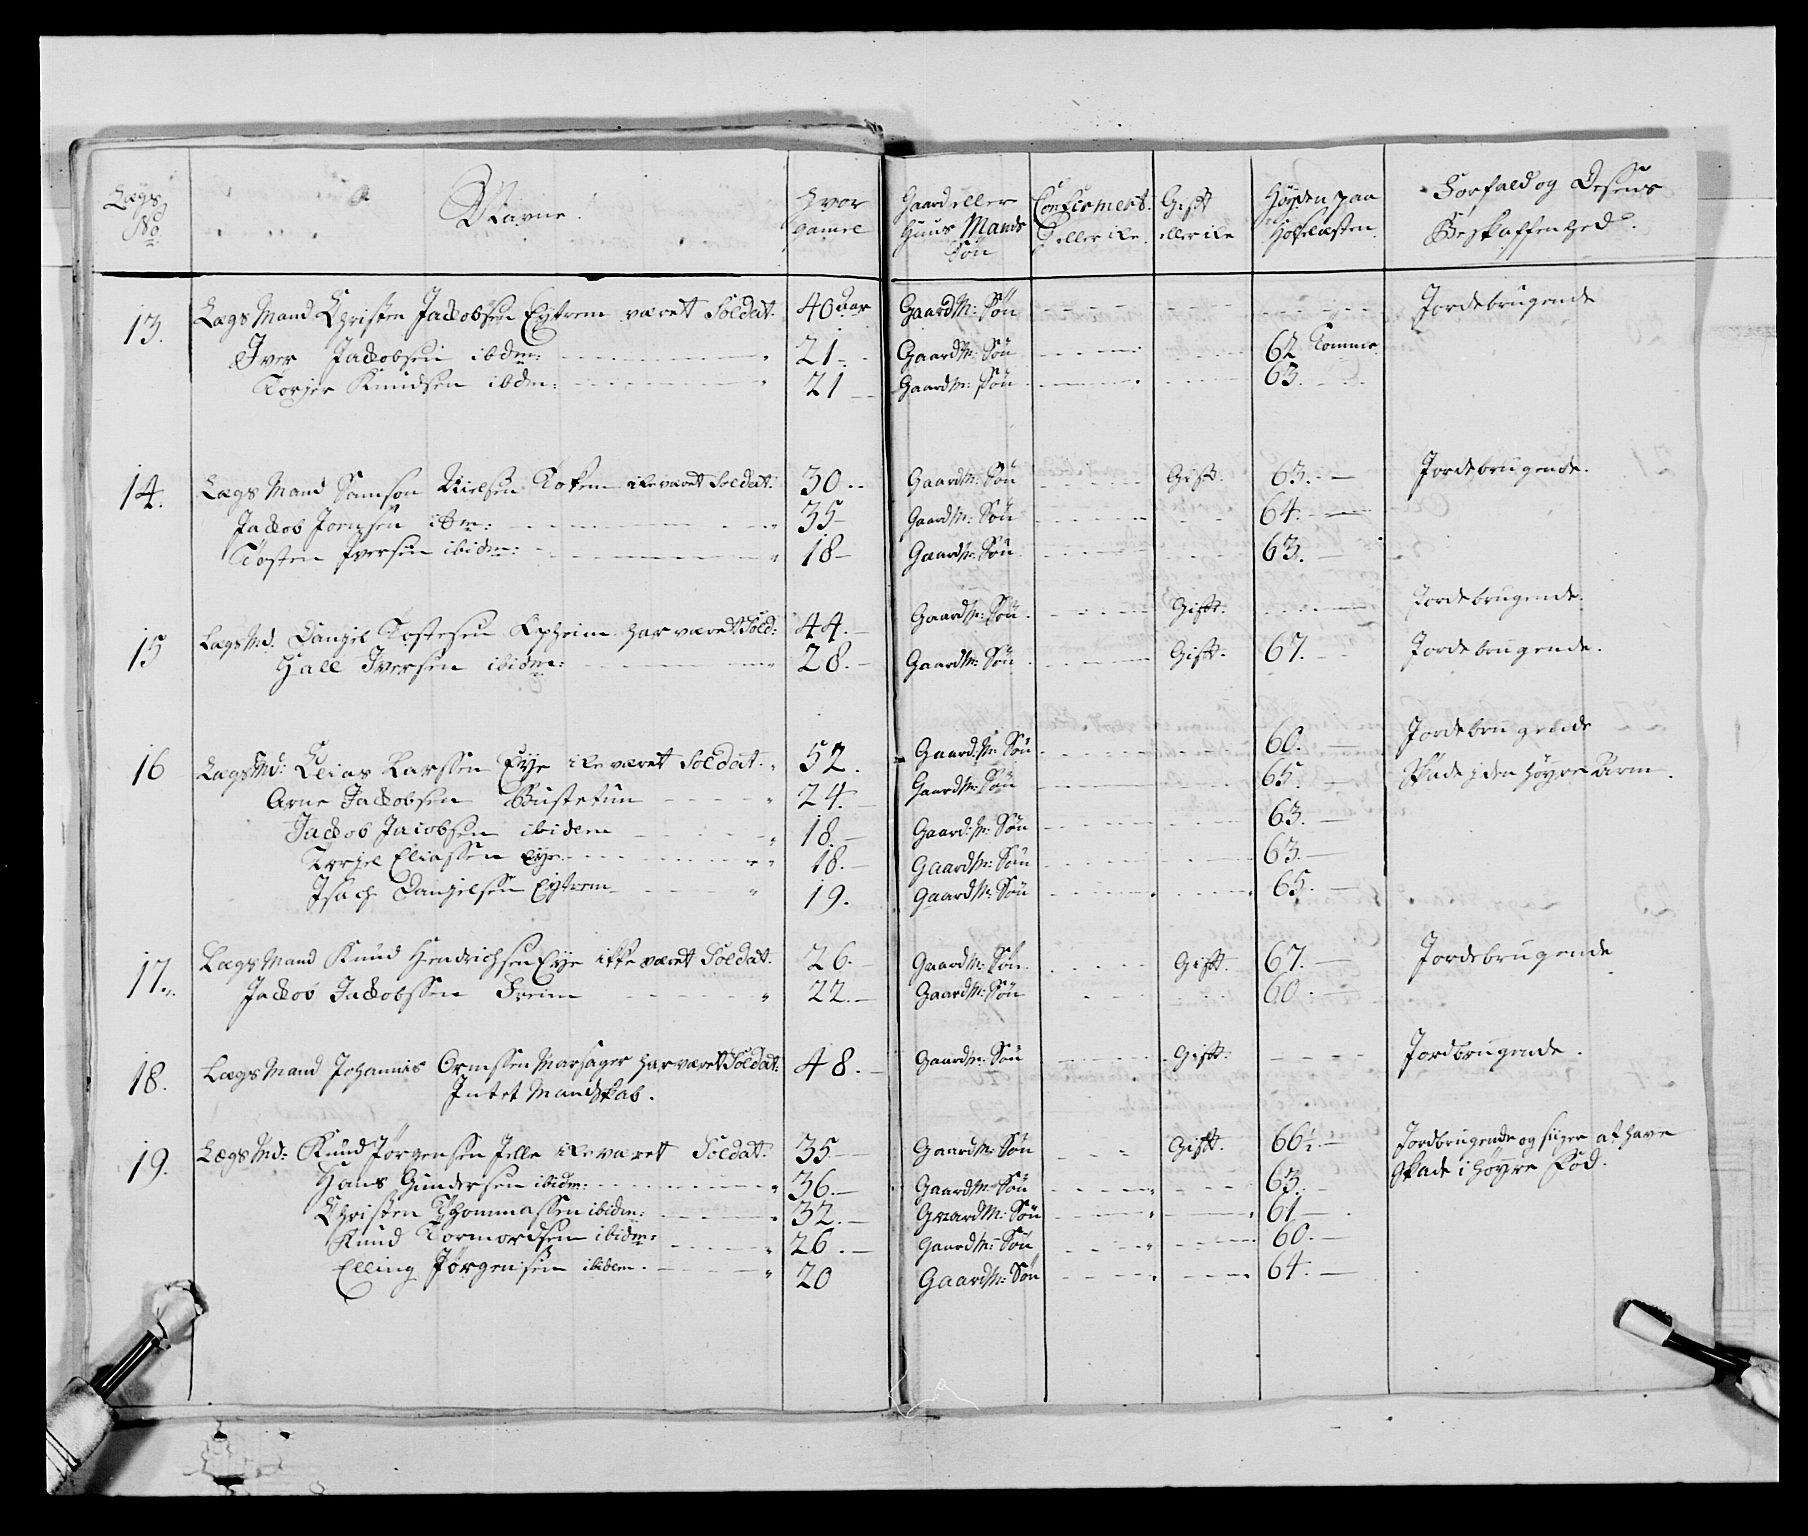 Lægs No | Navne. | Hvor gamel | Gaard eller Huus Mands Søn | Confirmert eller ike. | Gift eller ike | Høyden paa Hoselæsten | Forfald og Desens Beskaffenhed.
13. Lægs Mand Christen Jackobsen Eytrem været Soldat. 40 aar Gaard M: Søn Jordebrugende
Iver Jackobsen ibdm: 21 Gaard M: Søn 62 Tomme
Torjer Knudsen ibdm: 21 Gaard M: Søn 63.
14. Lægs Mand Samson Nielsen Tokem ike været Soldat. 30 Gaard M: Søn Gift. 63. Jordebrugende.
Jackob Jonsen ibm: 35 Gaard M: Søn 64.
Tosten Iversen ibidm: 18 Gaard M: Søn 63.
15 Lægs Md. Daniel Tostesen Opheim har været Sold: 44. Gaard M: Søn. Gift. Jordebrugende.
Hall Iversen ibidm: 28. Gaard M: Søn Gift. 67. Jordebrugende.
16 Lægs Md: Elias Larssen Eye ike været Soldat. 52. Gaard M: Søn 60. Jordebrugende
Arne Jackobsen Bustetun 24. Gaard M: Søn 65. Skade i den Høyre Arm.
Jackob Jacobsen ibidem 18. Gaard: M: Søn 63.
Torjel Eliassen Eye 18. Gaard M: Søn 63.
Isach Danielsen Eytrem 19. Gaard M: Søn 65.
17. Lægs Mand Knud Hendrichsen Eye ikke været Soldat. 26. Gaard M: Søn Gift. 67. Jordebrugende
Jackob Jackobssen Freim 22. Gaard M: Søn 60.
18. Lægs Mand Johannis Ormssen Marsager har været Soldat: 48. Gaard M: Søn Gift. Jordbrugende.
Intet Mandskab.
19. Lægs Md: Knud Jørgensen Jelle ike været Soldat. 35 Gaard M: Søn Gift. 66. Jordbrugende og siiger at have
Skade i Høyre Fod.
Hans Gundersen ibidm: 36. Gaard M: Søn 63.
Christen Thommassen ibidm: 32. Gaard M: Søn 61
Knud Tormordsen ibidm: 26. Gaard M: Søn 60.
Elling Jørgensen ibidem. 20 Gaard M: Søn 64.